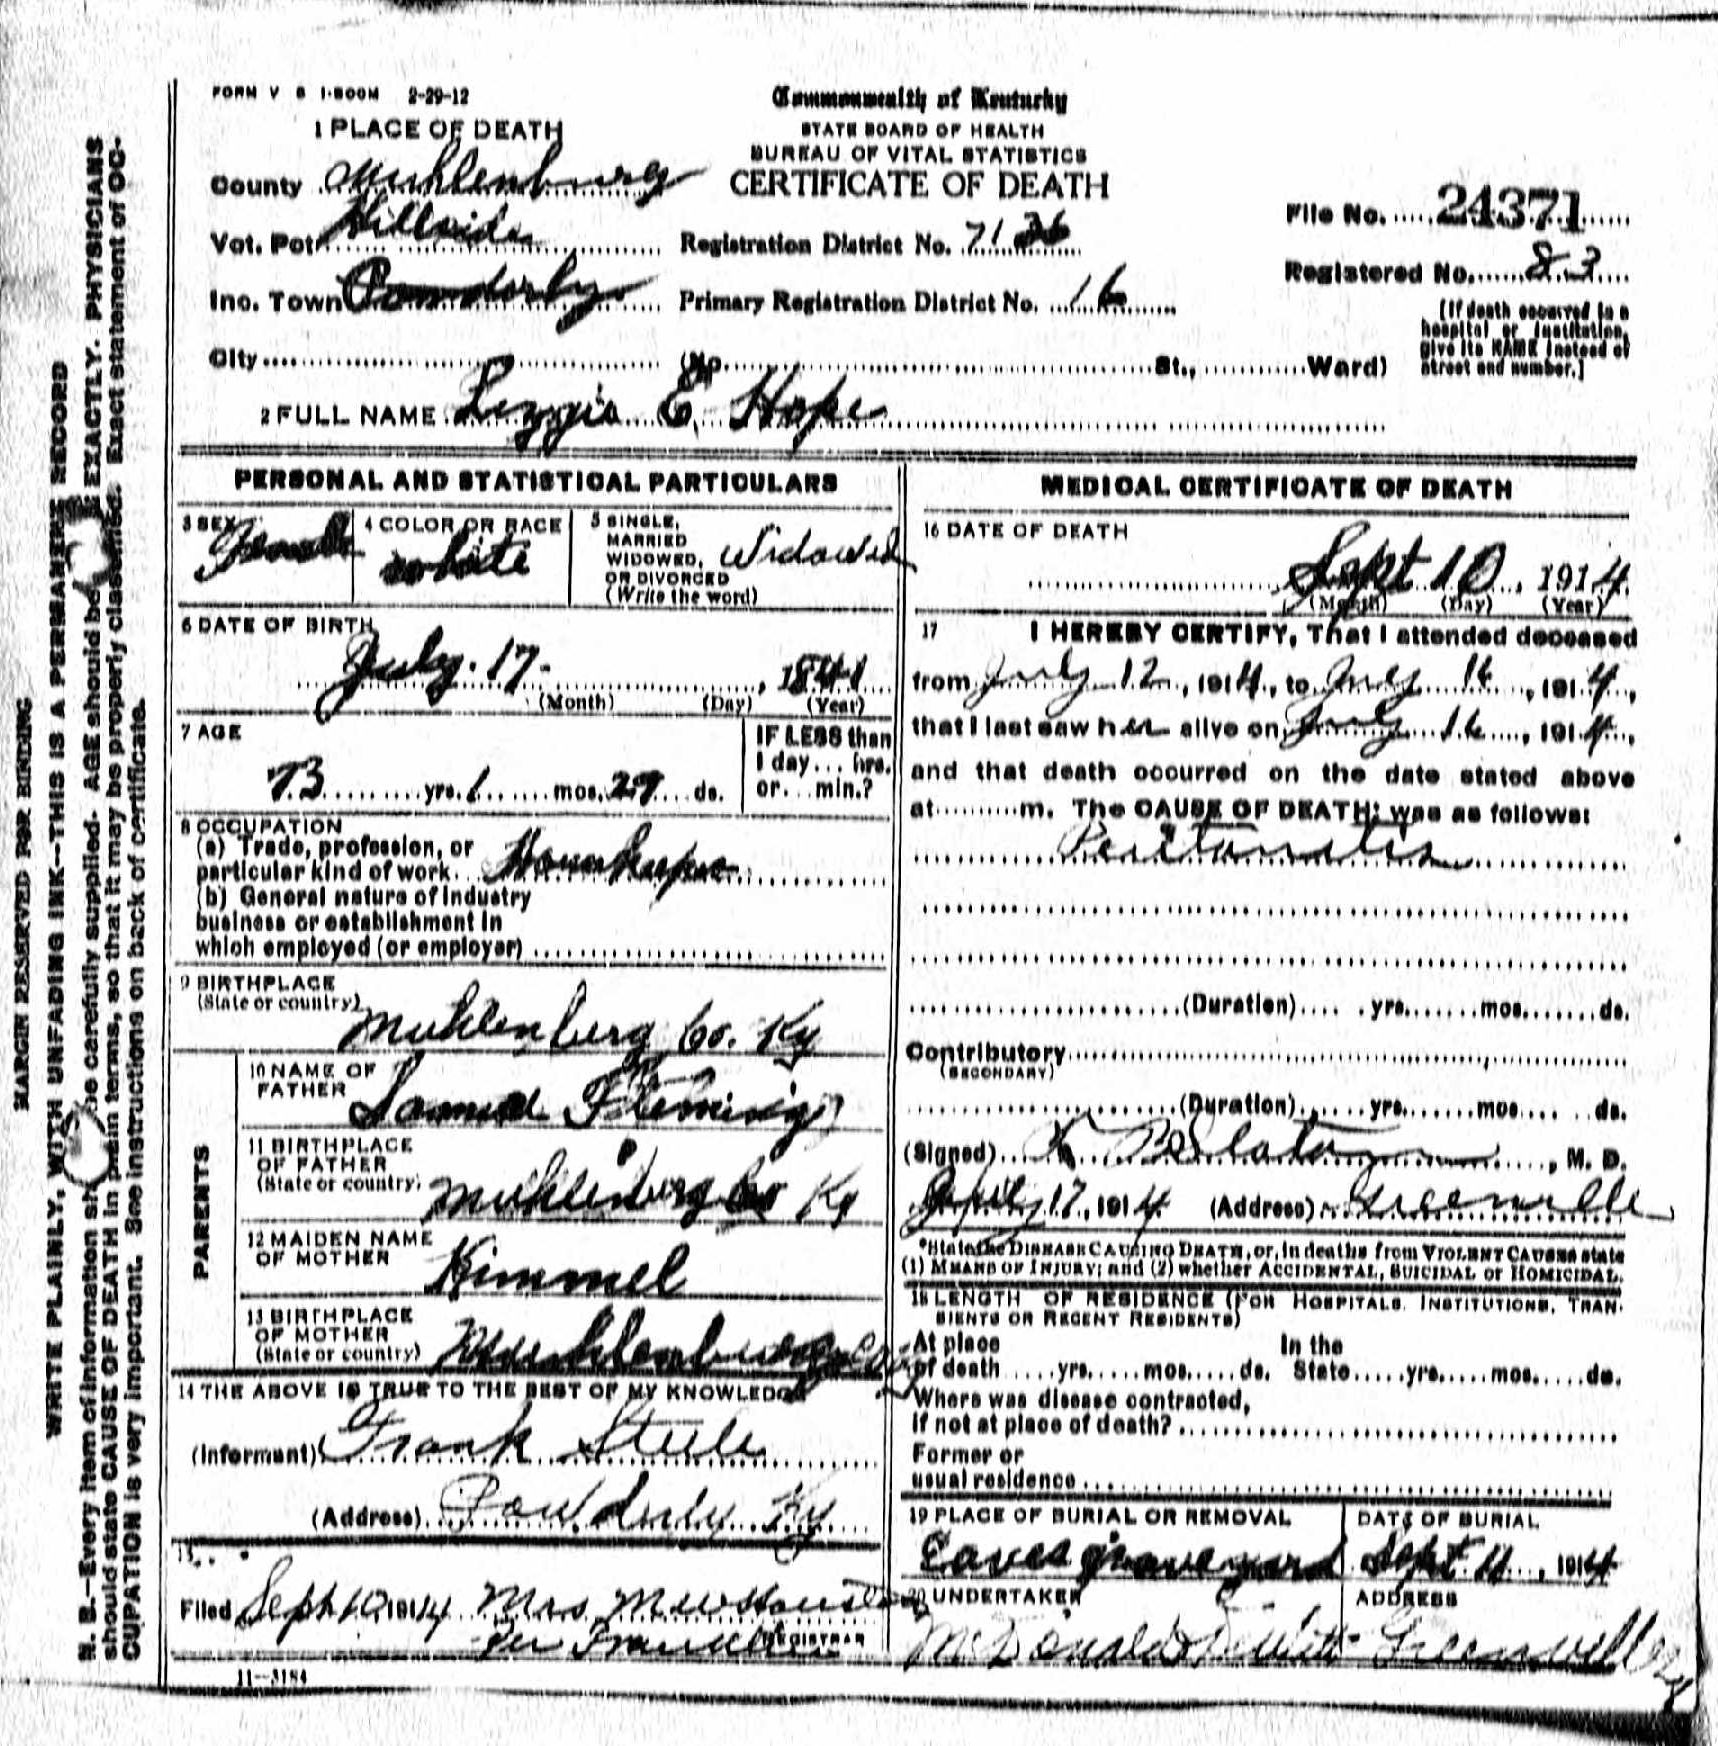 FORM V S 1-500M 2-29-12
Commonwealth of Kentucky
STATE BOARD OF HEALTH
BUREAU OF VITAL STATISTICS
CERTIFICATE OF DEATH
1 PLACE OF DEATH
County Muhlenburg
Vot. Pct Hillside
Inc. Town Powderly
City (No. St., Ward)
Registration District No. 71
Primary Registration District No. 16
File No. 24371
Registered No. 83
[If death occurred in a
hospital or institution,
give its NAME instead of
street and number.]
2 FULL NAME Lizzie E. Hope
PERSONAL AND STATISTICAL PARTICULARS
3 SEX Female
4 COLOR OR RACE white
5 SINGLE,
MARRIED
WIDOWED,
OR DIVORCED
(Write the word) Widowed
6 DATE OF BIRTH
July 17 , 1841
(Month) (Day) (Year)
7 AGE
73 yrs. 1 mos. 29 ds.
IF LESS than
1 day... hrs.
or... min.?
8 OCCUPATION
(a) Trade, profession, or
particular kind of work Housekeeper
(b) General nature of Industry
business or establishment in
which employed (or employer)
9 BIRTHPLACE
(State or country)
Muhlenberg Co. Ky
PARENTS
10 NAME OF
FATHER Samuel Fleming
11 BIRTHPLACE
OF FATHER
(State or country) Muhlenburg Co Ky
12 MAIDEN NAME
OF MOTHER Kimmel
13 BIRTHPLACE
OF MOTHER
(State or country) Muhlenburg Co
14 THE ABOVE IS TRUE TO THE BEST OF MY KNOWLEDGE
(Informant) Frank Steele
(Address) Powderly Ky
15
Filed Sept 10 1914 Mrs
Per
REGISTRAR
11-3184
MEDICAL CERTIFICATE OF DEATH
16 DATE OF DEATH
Sept 10, 1914
(Month) (Day) (Year)
17 I HEREBY CERTIFY, That I attended deceased
from July 12, 1914, to July 16, 1914,
that I last saw her alive on July 16, 1914,
and that death occurred on the date stated above
at m. The CAUSE OF DEATH; was as follows:
Peritonitis
(Duration) yrs. mos. ds.
Contributory
(SECONDARY)
(Duration) yrs. mos. ds.
(Signed) Slaton, M. D.
17, 1914 (Address) Greenville
*State the DISEASE CAUSING DEATH, or, in deaths from VIOLENT CAUSES state
(1) MEANS OF INJURY; and (2) whether ACCIDENTAL, SUICIDAL or HOMICIDAL.
18 LENGTH OF RESIDENCE (FOR HOSPITALS. INSTITUTIONS, TRAN-
SIENTS OR RECENT RESIDENTS)
At place In the
of death yrs. mos. ds. State yrs. mos. ds.
Where was disease contracted,
if not at place of death?
Former or
usual residence
19 PLACE OF BURIAL OR REMOVAL
Caves graveyard
DATE OF BURIAL
Sept. 11, 1914
20 UNDERTAKER
McDonald & DeWitt
ADDRESS
Greenville Ky
MARGIN RESERVED FOR BINDING
WRITE PLAINLY, WITH UNFADING INK--THIS IS A PERMANENT RECORD
N. B.-Every item of information should be carefully supplied. AGE should be EXACTLY. PHYSICIANS
should state CAUSE OF DEATH in plain terms, so that it may be properly classified. Exact statement of OC-
CUPATION is very important. See instructions on back of certificate.